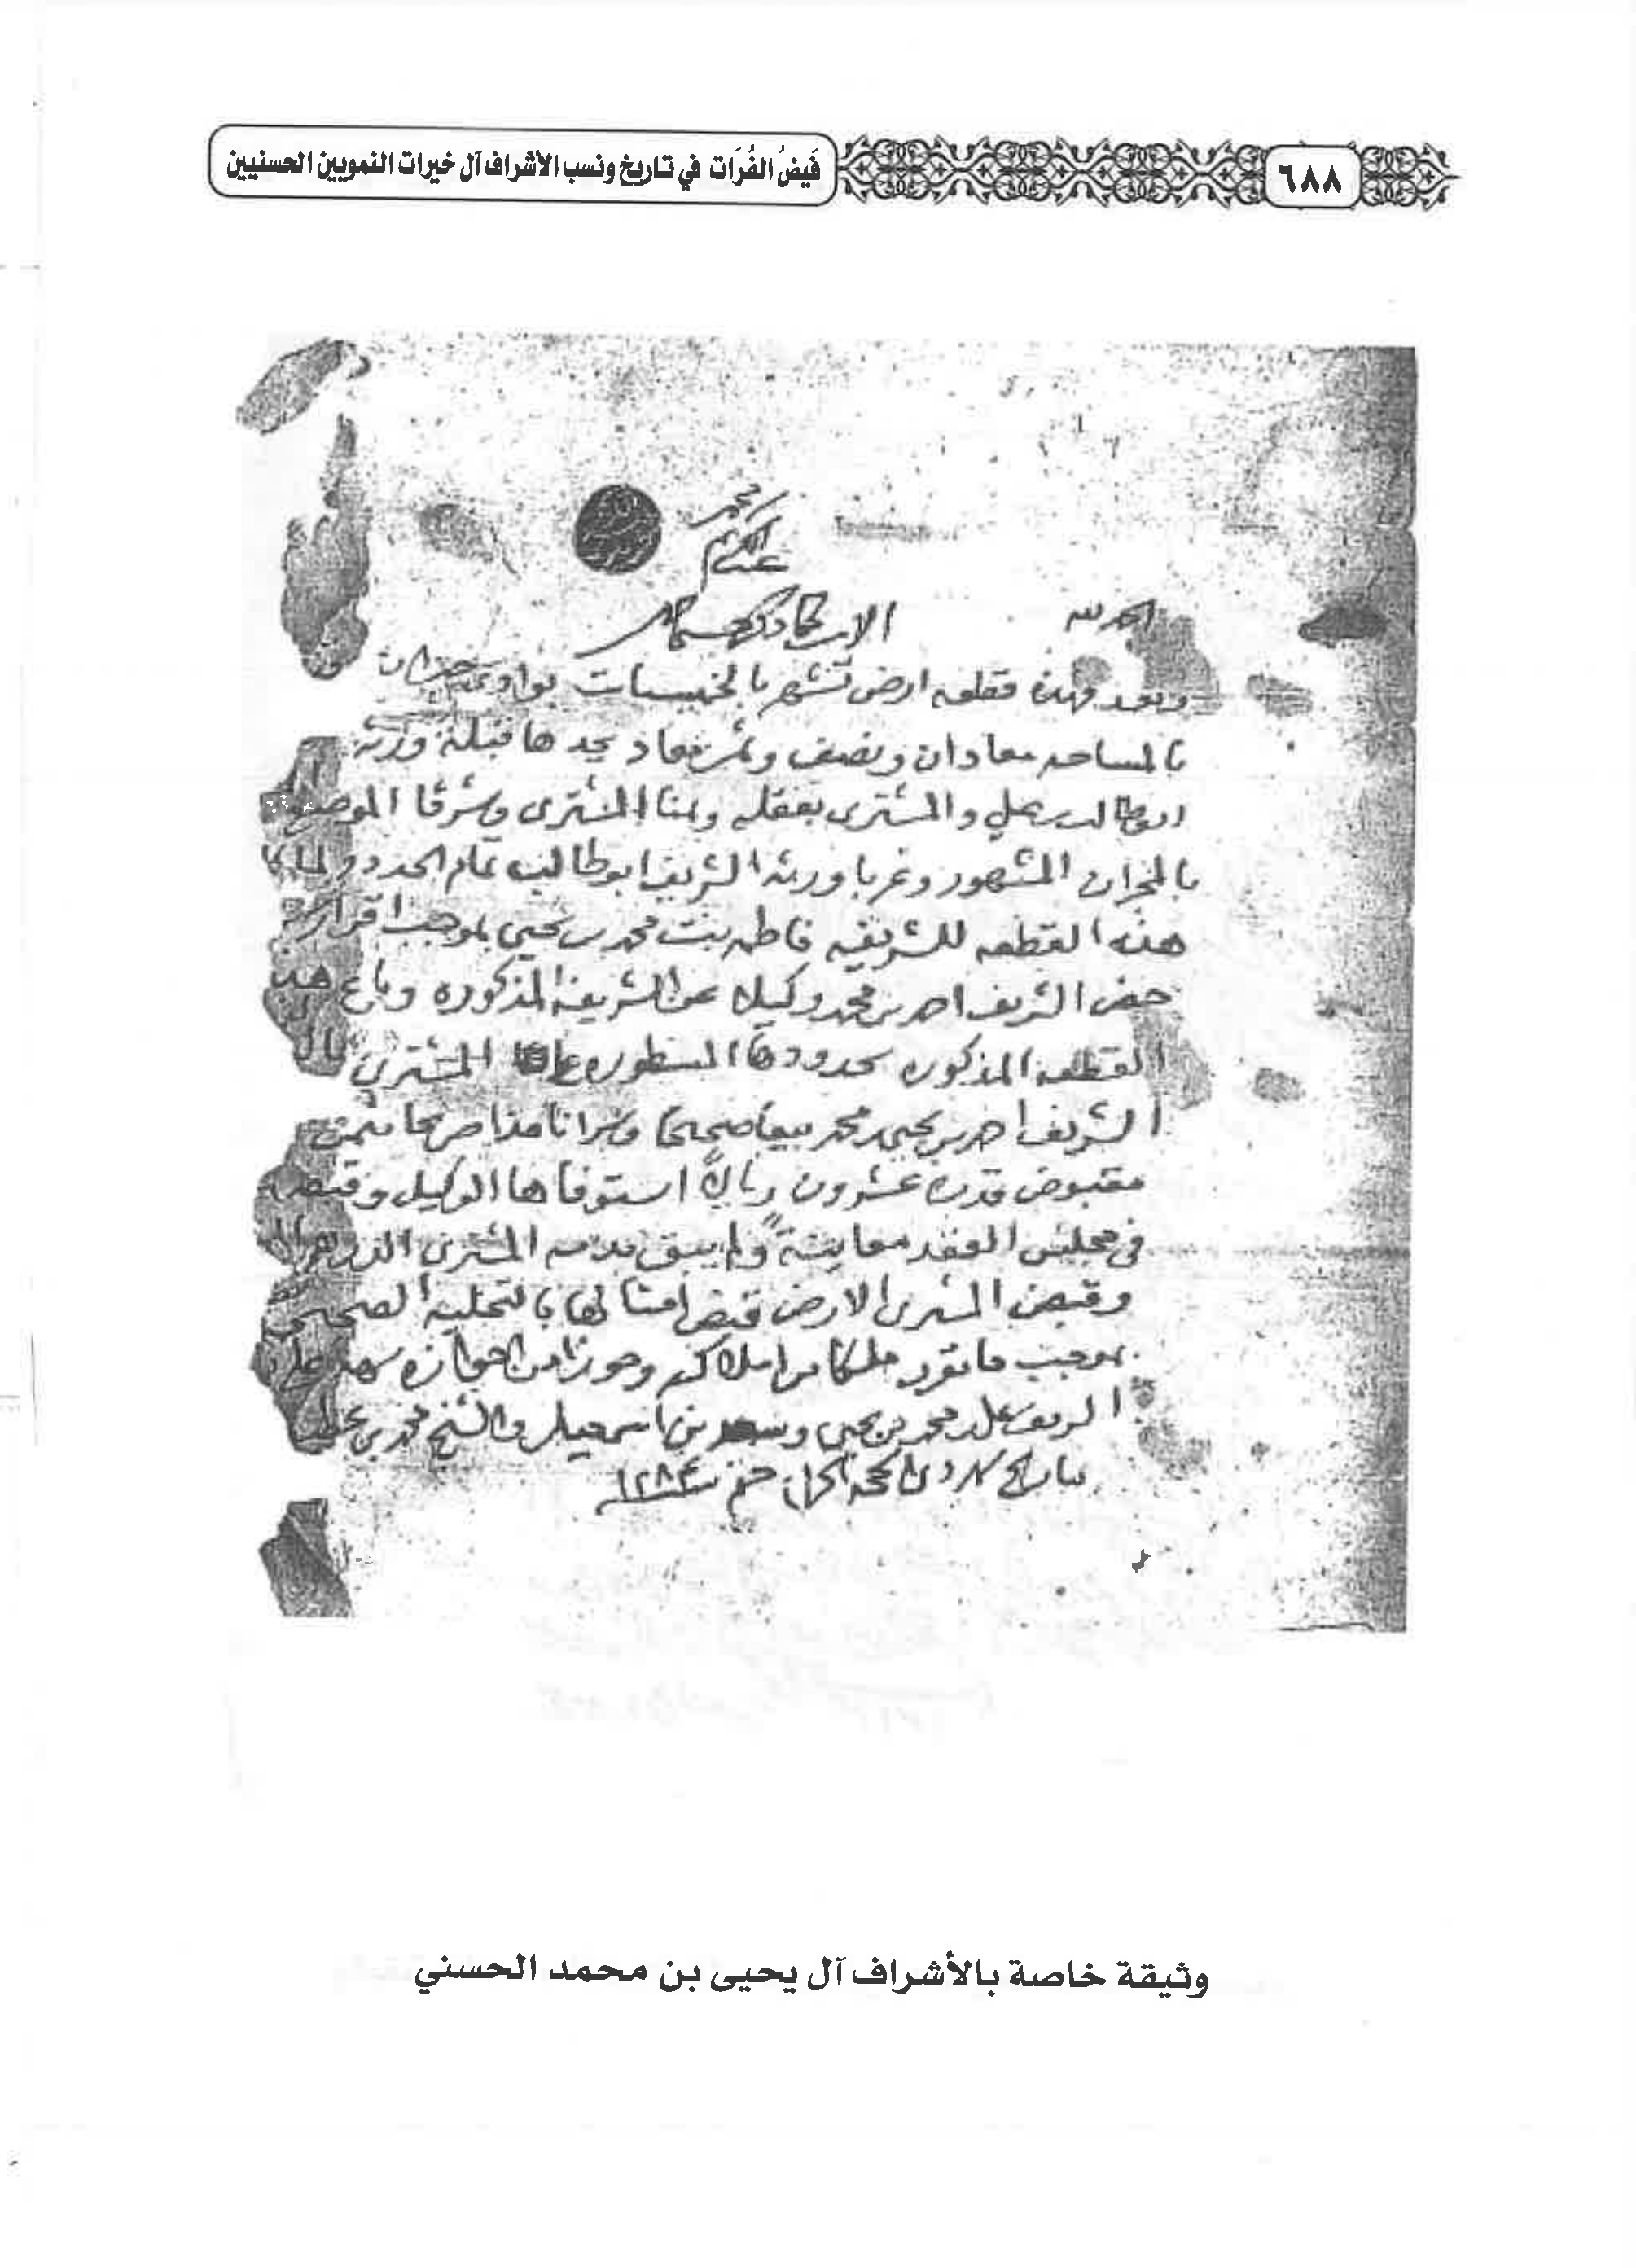 فَيضُ الفُرَات في تاريخ ونسب الأشراف آل خيرات النمويين الحسنيين
٦٨٨
الحمد لله
وبعد فهذه قطعه ارض تشهر بالخميسات بوادي
بالمساحه معادان ونصف وثمن معاد يحدها قبلة ورثة
ابوطالب علي والمشترى بعقله ويمنا المشترى وشرقا الموضع
بالمخران المشهور وغربا ورثة الشريف ابوطالب تمام الحدود
هذه القطعه للشريفه فاطمه بنت محمد بن يحيى بموجب اقرار
حضر الشريف احمد بن محمد وكيلا عن الشريفة المذكوره وباع هذه
القطعه المذكوره بحدودها المسطوره المشتري
الشريف احمد بن يحيى محمد بيعا صحيحا صريحا بثمن
مقبوض قدره عشرون ريالاً استوفاها الوكيل وقبض
في مجلس العقد معاينةً ولم يبق بذمه المشترى
وقبض المشترى الارض قبض امثالها بالتخليه الصحيحه
بموجب ملكا من املاكه وحوزا من احوازه شهد على
محمد بن يحيى وسعد بن اسمعيل والشيخ محمد بن
الحجة الحرام ختم سنة ١٢٨٤
وثيقة خاصة بالأشراف آل يحيى بن محمد الحسني